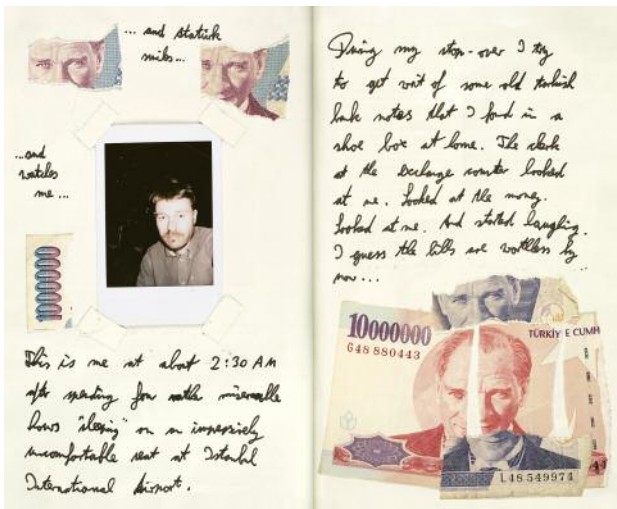 ... and Atatürk
smiles...
...and
watches
me...
1000000
This is me at about 2:30 AM
after spending four rather miserable
hours "sleeping" on an impressively
uncomfortable seat at Istanbul
International Airport.
During my stop-over I try
to get rid of some old turkish
bank notes that I found in a
shoe box at home. The clerk
at the exchange counter looked
at me. Looked at the money.
Looked at me. And started laughing.
I guess the bills are worthless by
now...
10000000
G48 880443
TÜRKİYE CUMH
L48 549974